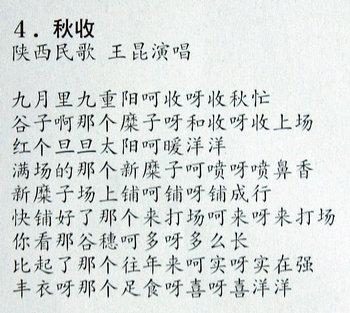 4．秋收
陕西民歌 王昆演唱
九月里九重阳呵收呀收秋忙
谷子啊那个糜子呀和收呀收上场
红个旦旦太阳呵暖洋洋
满场的那个新糜子呵喷呀喷鼻香
新糜子场上铺呵铺呀铺成行
快铺好了那个来打场呵来呀来打场
你看那谷穗呵多呀多么长
比起了那个往年来呵实呀实在强
丰衣呀那个足食呀喜呀喜洋洋